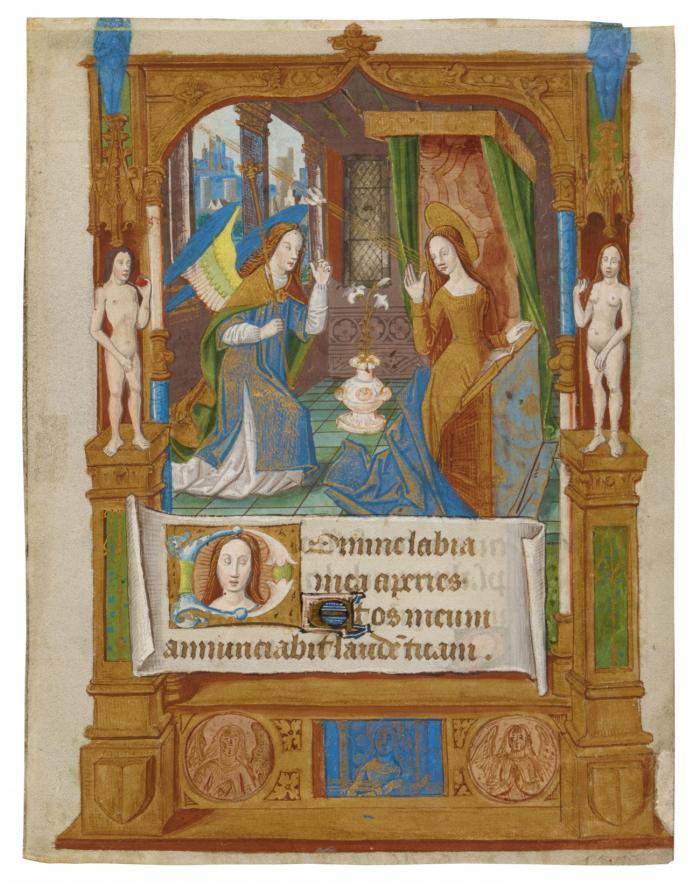 Domine labia
mea aperies
Et os meum
annunciabit laudē tuam.